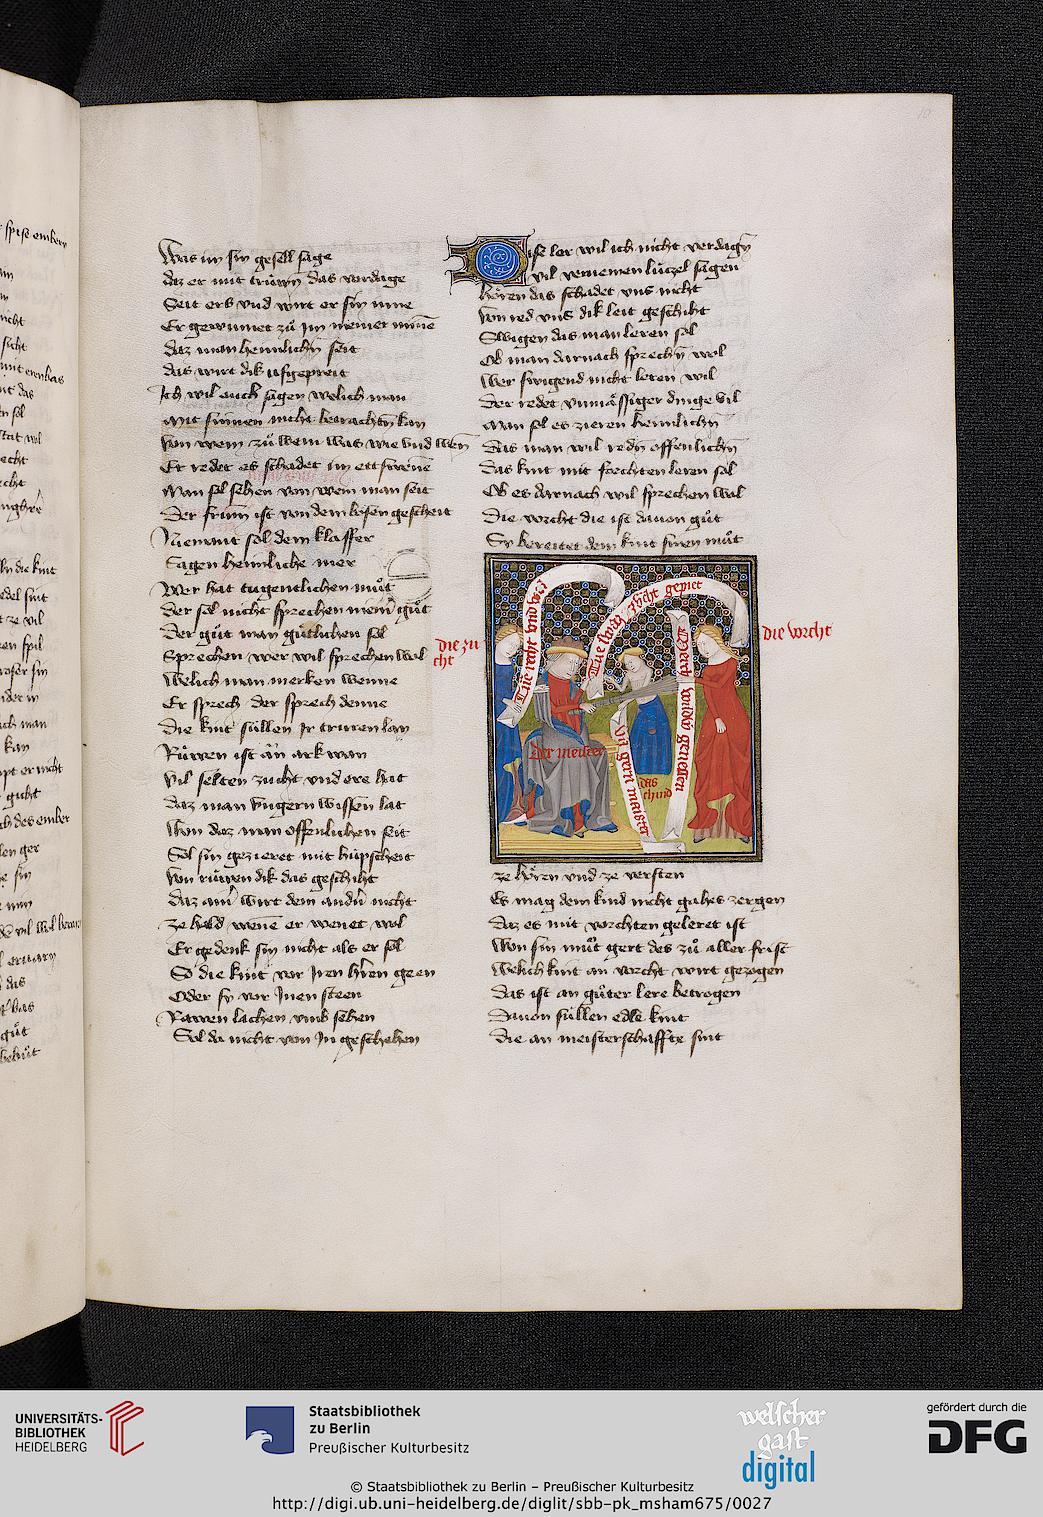 Was im sin gesell sage
daz er mit trüwen das verdage
Seit ers vnd wirt er sin inne
Er gewinnet zů jm niemer minne
daz man heimlichen seit
das wirt dik usgepreit
Ich wil euch sagen welich man
mit sinnen nicht betrachten kan
Von wem zů wem was wie vnd wen
Er redet es schadet im ettswenne
Man sol sehen von wem man seit
Der frum ist von dem bösen gescheit
Niemant sol dem klaffer
Sagen heimliche mer
Wer hat tugentlichen můt
der sol nicht sprechen mein gůt
Der gůt man gůtlichen sol
Sprechen wer wil sprechen wol
Welich man merken wenne
Er sprech der sprech denne
Die kint süllen Jr truren lan
Růwen ist an ark wan
Vil selten zucht vnd ere hat
daz man vngern wissen lat
Von daz man offenlichen seit
Sol sin gezieret mit hüpscheit
Von rüwen dik das geschiht
daz wirt dem andern nicht
ze hald wenne er wenet wol
Er gedenk sin nicht als er sol
So die kint vor Jren herren geen
Oder sy vor Jnen steen
Rawen lachen vmb sehen
Sol da nicht von Jn geschehen
Dise ler wil ich nicht verdagen
vil vernemen lüczel sagen
hören das schadet vns nicht
von red vns dik leit geschiht
Swigen das man leren sol
Ob man darnach sprechen wol
Wer swigend nicht leren wil
Der redet vnmässiger dinge vil
Man sol es zieren heimlichen
das man wil reden offenlichen
das kint mit forchten leren sol
Ob es darnach wil sprechen wol
Die vorcht die ist dauon gůt
Sy bereitet dem kint sinen můt
die zu
cht
die vorcht
Tue recht vnd wol
Tue swaz zucht gepiet
Wildu genesen
Vil gern maister
der meister
das
chind
ze hören vnd ze versten
Es mag dem kind nicht gahes zergen
daz es mit vorchten geleret ist
Won sin můt gert des zů aller frist
Welich kint an vorcht wirt gezogen
das ist an gůter lere betrogen
dauon süllen edle kint
die an meisterschaffte sint
UNIVERSITÄTS-
BIBLIOTHEK
HEIDELBERG
Staatsbibliothek
zu Berlin
Preußischer Kulturbesitz
welscher
gast
digital
gefördert durch die
DFG
© Staatsbibliothek zu Berlin – Preußischer Kulturbesitz
http://digi.ub.uni-heidelberg.de/diglit/sbb-pk_msham675/0027